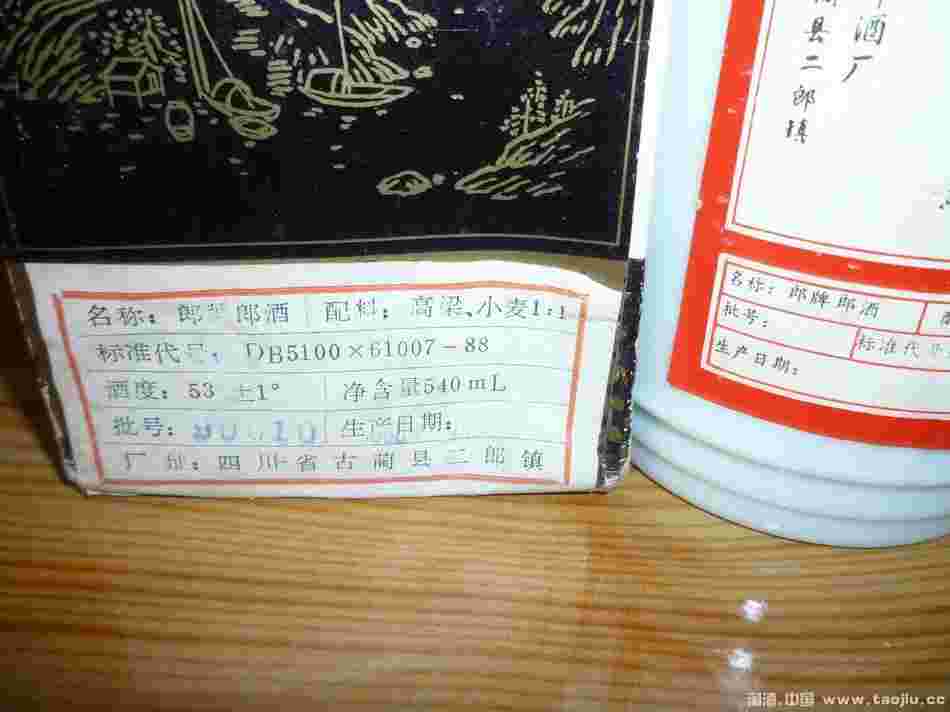 名称：郎 郎酒 配料：高梁、小麦1:1
标准代号：DB5100×61007-88
酒度：53 ±1° 净含量540mL
批号： 生产日期：
厂址：四川省古蔺县二郎镇
酒厂
县二郎镇
名称：郎牌郎酒
批号： 标准代
生产日期：
中国 www.taojiu.cc